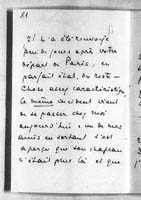 81
Il m'a été renvoyé
peu de jours après votre
départ de Paris, en
parfait état, du reste –
Chose assez caractéristique,
le même accident vient
de se passer chez moi
aujourd'hui : un de mes
amis en sortant s'est
aperçu que son chapeau
n'était plus là et que